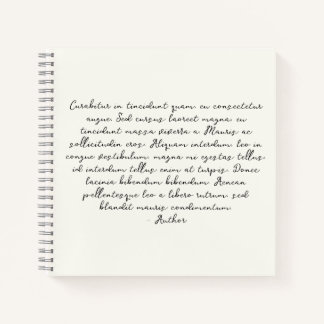 Curabitur in tincidunt quam, eu consectetur
augue. Sed cursus laoreet magna, eu
tincidunt massa viverra a. Mauris ac
sollicitudin eros. Aliquam interdum leo in
congue vestibulum. magna mi egestas tellus,
id interdum tellus enim at turpis. Donec
lacinia bibendum bibendum. Aenean
pellentesque leo a libero rutrum, sed
blandit mauris condimentum.
- Author